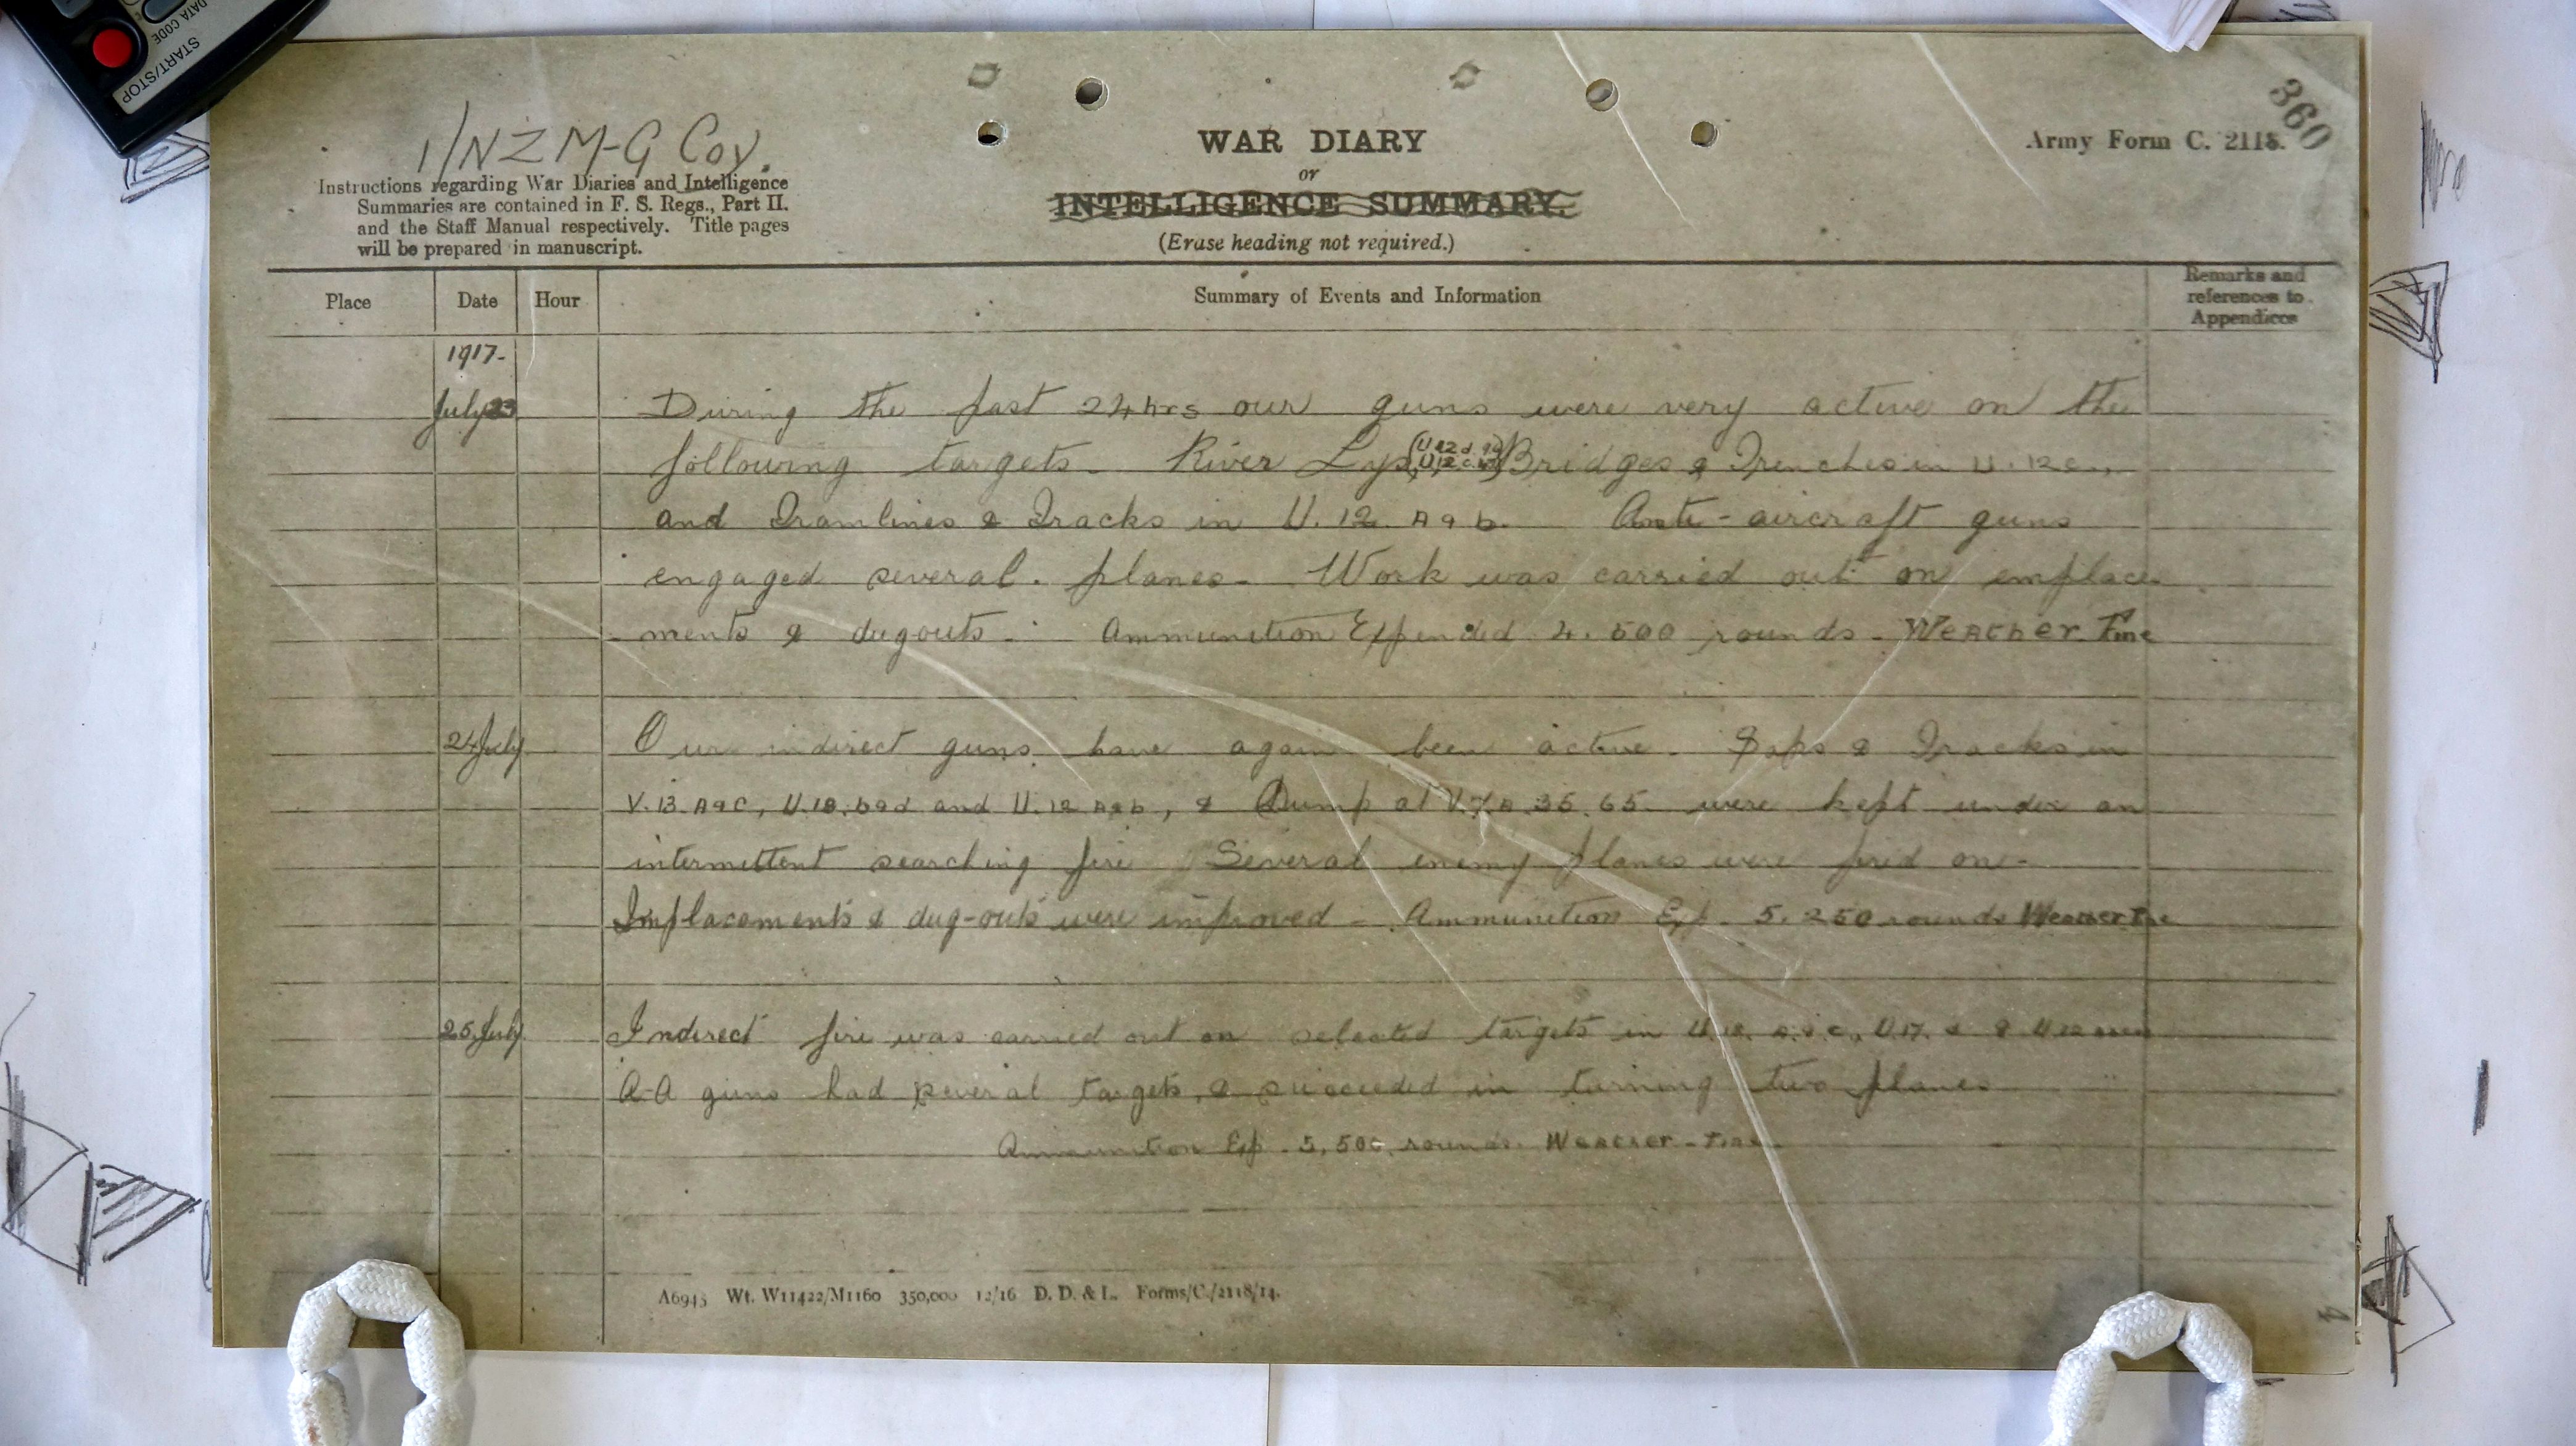 START/STOP
DATA CODE
360
1/NZ M-G Coy.
Instructions regarding War Diaries and Intelligence
Summaries are contained in F. S. Regs., Part II.
and the Staff Manual respectively. Title pages
will be prepared in manuscript.
WAR DIARY
or
INTELLIGENCE SUMMARY.
(Erase heading not required.)
Army Form C. 2118.
Place Date Hour Summary of Events and Information Remarks and
references to
Appendices
1917-
July 23 During the past 24 hrs our guns were very active on the
following targets- River Lys Bridges & Trenches in U.12.c.,
and Tramlines & Tracks in U.12. A & b. Anti-aircraft guns
engaged several planes- Work was carried out on emplace
-ments & dugouts- Ammunition Expended 4.500 rounds- Weather Fine
24 July Our indirect guns have again been active- Saps & Tracks in
V.13.A & C, U.18.b & d and U.12 A & b, & Dump at V.7.A.35.65 were kept under an
intermittent searching fire Several enemy planes were fired on-
Implacements & dug-outs were improved- Ammunition Exp- 5.250 rounds Weather Fine
25 July Indirect fire was carried out on selected targets in U.18. U.17. & U.12
A-A guns had several targets, & succeeded in turning two planes
Ammunition Exp- 5,500 rounds. Weather-Fine
A6945 Wt. W11422/M1160 350,000 12/16 D. D. & L. Forms/C./2118/14.